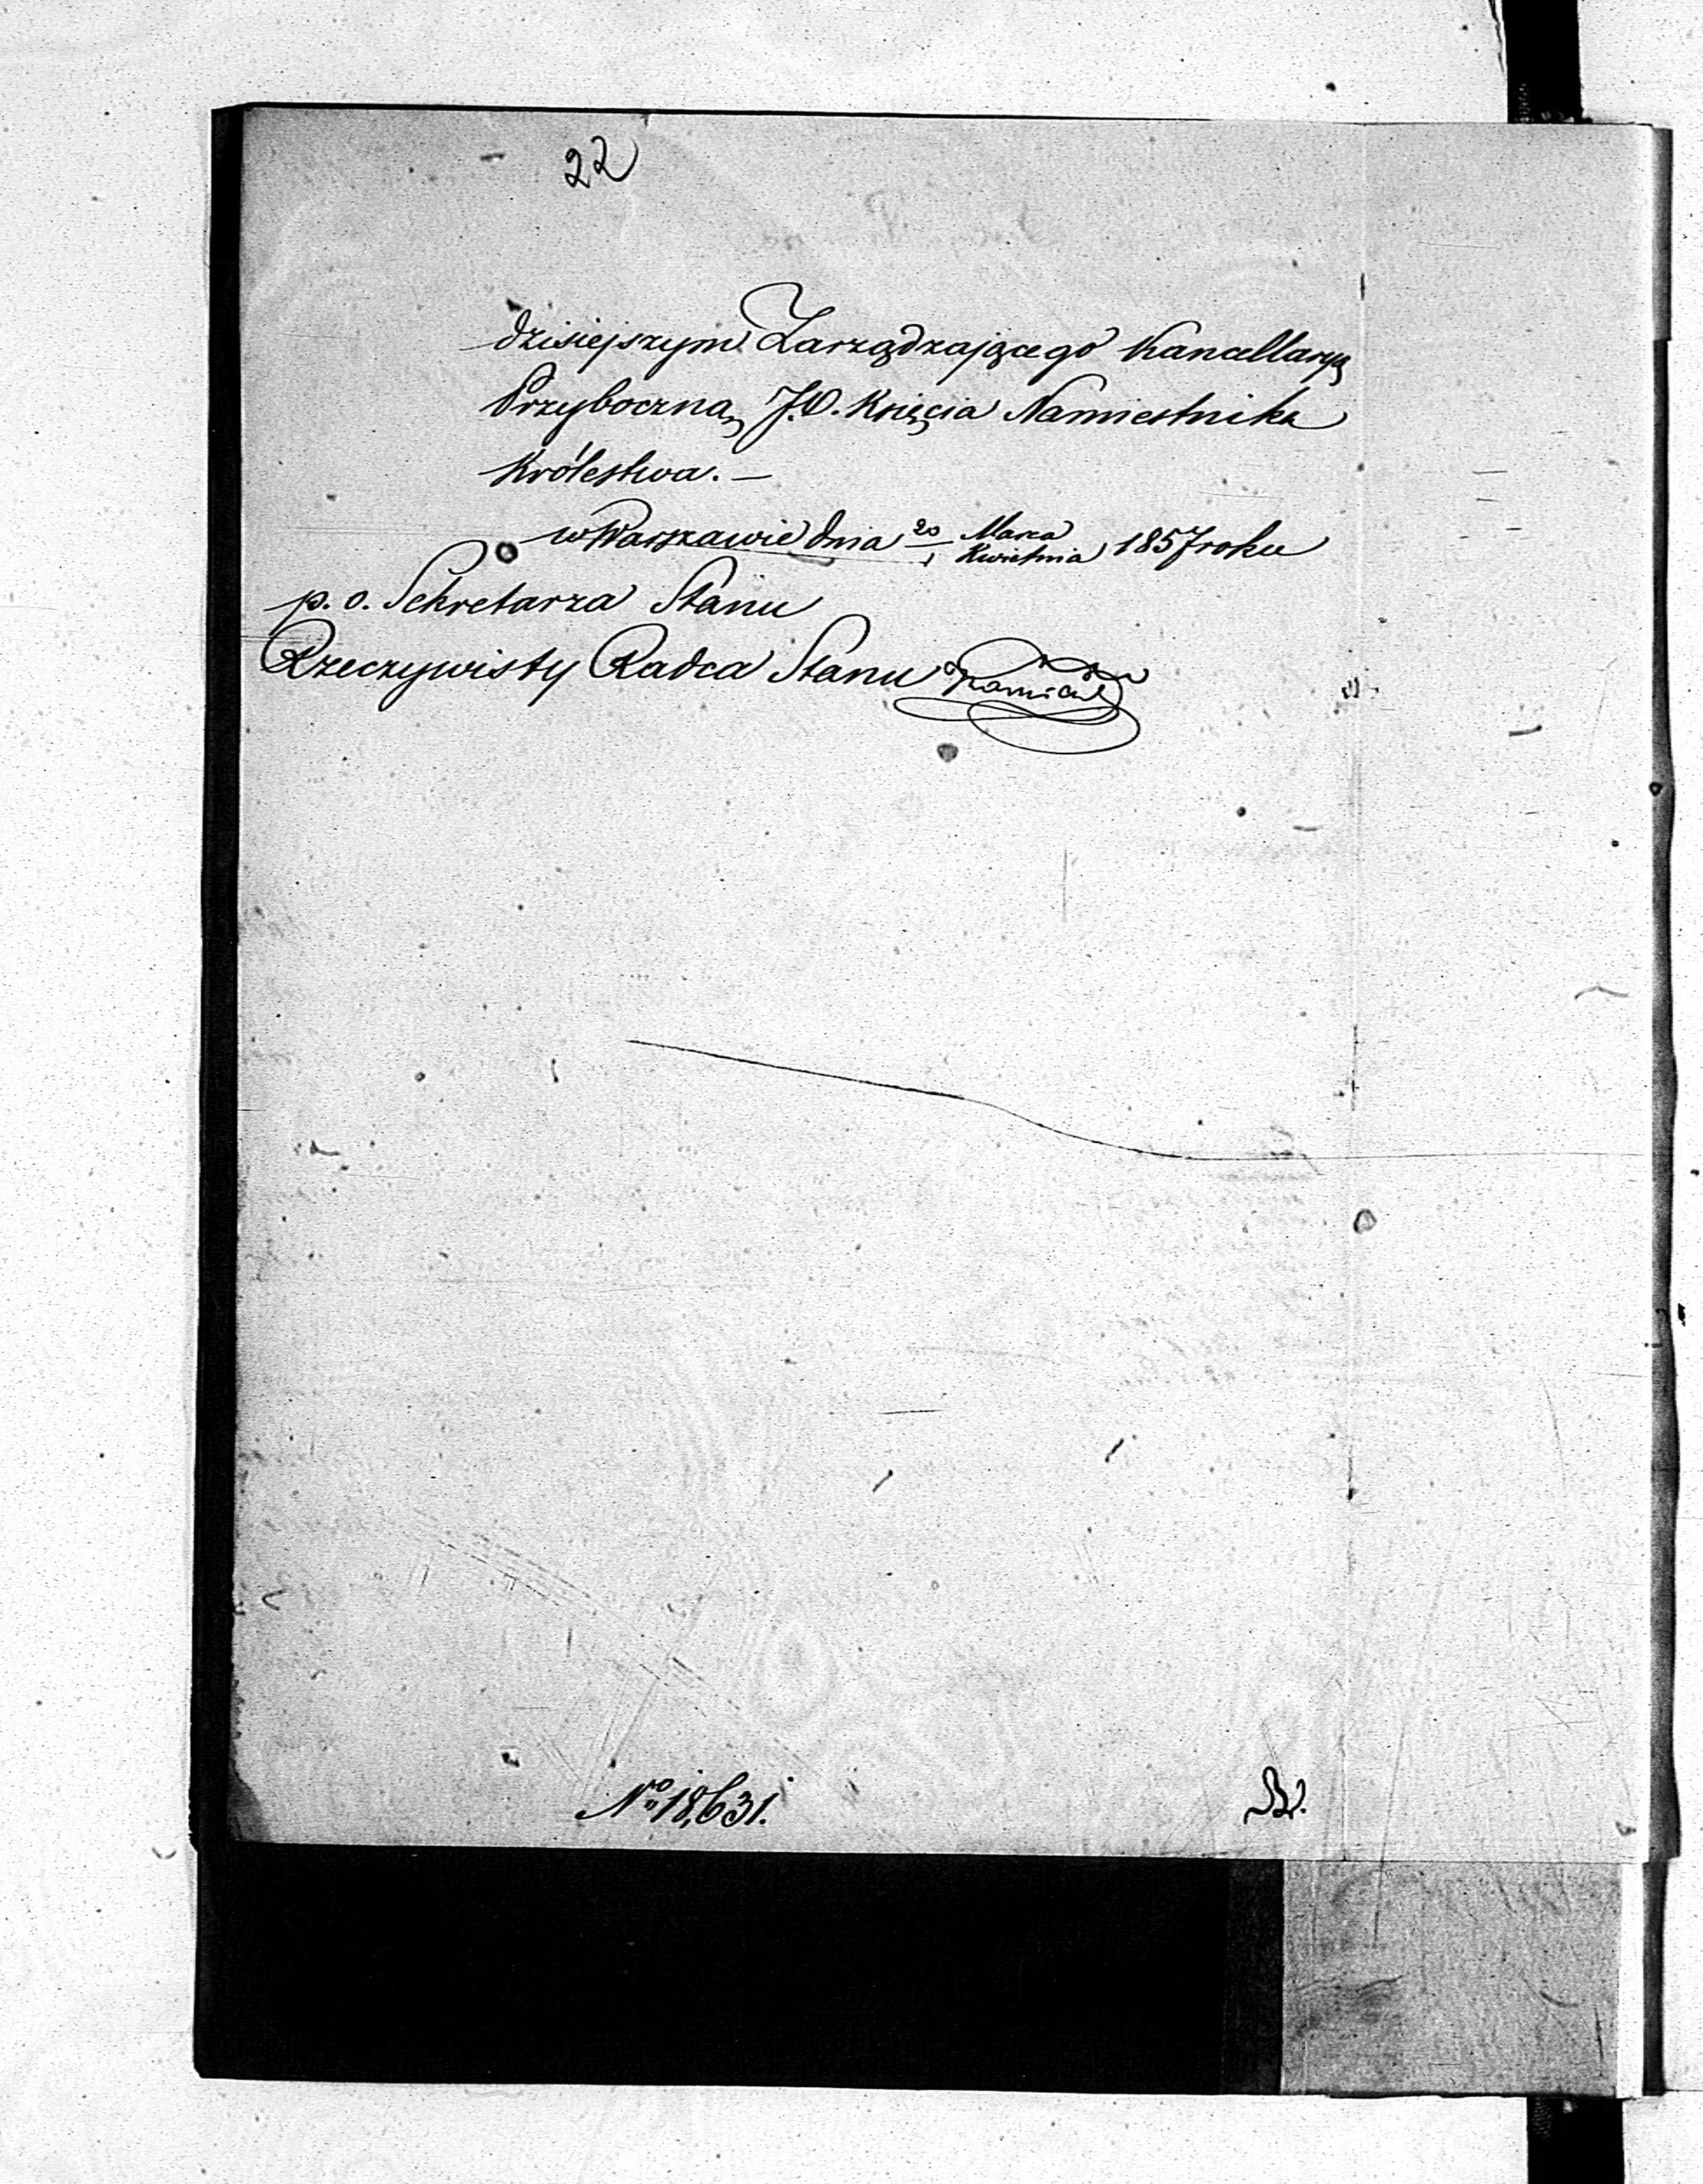 22
dzisiejszym Zarządzającego Kancellaryą
Przyboczną J.O. Księcia Namiestnika
Królestwa. —
w Warszawie dnia 20/1 Marca/Kwietnia 1857 roku
p. o. Sekretarza Stanu
Rzeczywisty Radca Stanu
No 18,631.